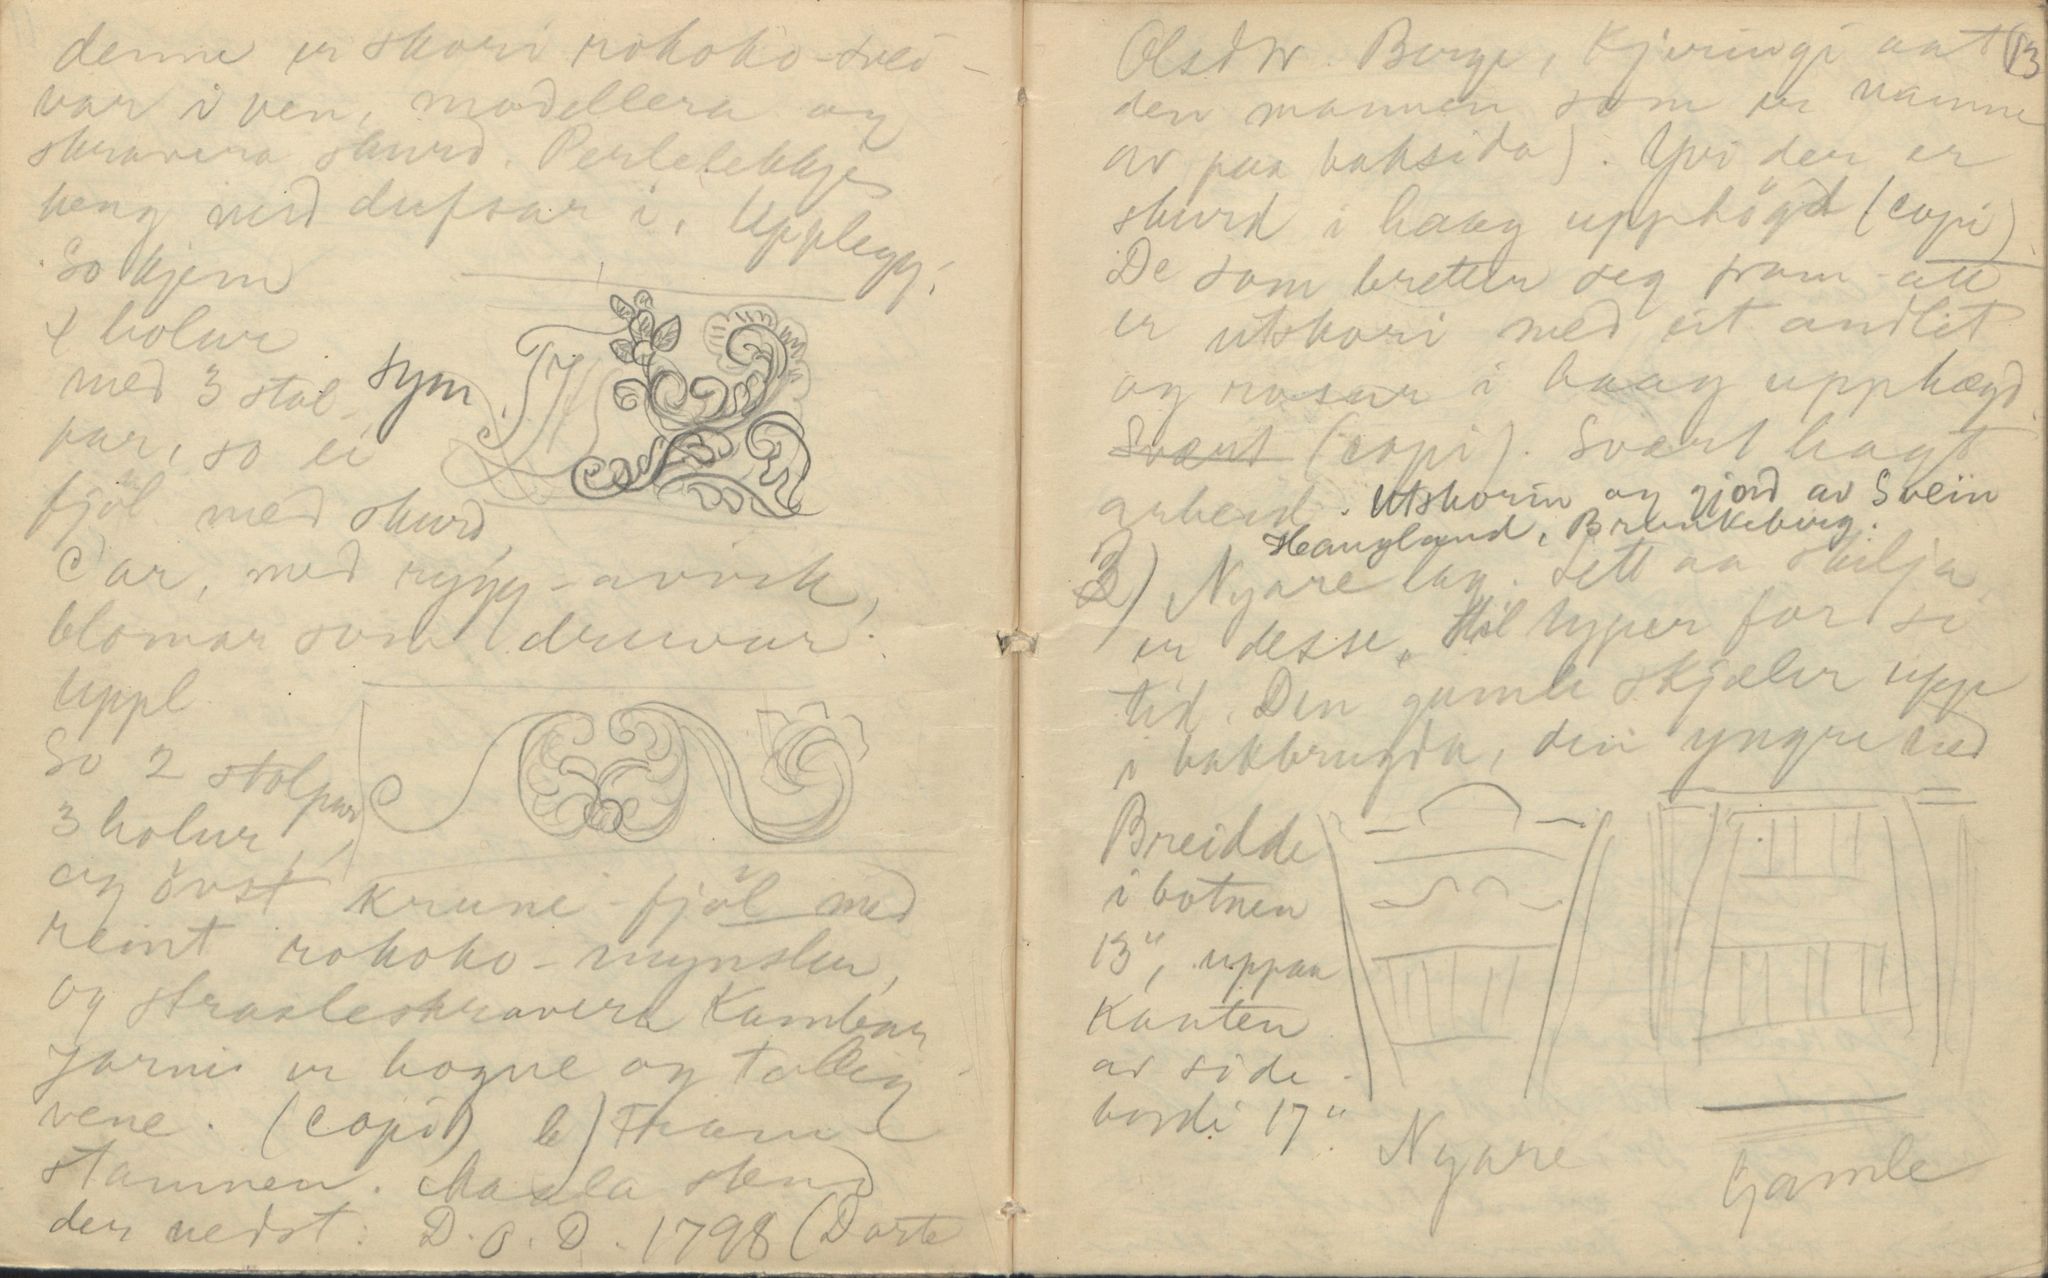 denne er skori rokoko-svei-
var i ven, modellera og
skravera skurd. Perlelekkje
heng med dufsar i. Upplegg:
So kjem
4 holur
med 3 stol-
par, so ei
fjøl med skurd,
sym.
C'ar, med rygg-avvik,
blomar som druvur.
Uppl
So 2 stolpar
3 holur,
og øvst krune-fjøl med
reint rokoko-mynster,
og straaleskravera Kambar
Jarni er hogne og tolleg
vene. (copi) b) Fram-
stamnen. Maala stend
der nedst: D. O. D. 1798 (Darte
13
Olsdtr. Berge, Kjeringi aat
den mannen som er namne
av paa baksida). Yvi der er
skurd i haag upphøgd (copi)
De som bretter seg fram-att
er utskori med eit andlit
og rosar i haag upphøgd.
Svært (copi). Svært hagt
arbeid. Utskorin og gjord av Svein
Haugland, Brunkeberg.
3) Nyare lag. Lett aa skilja
er desse, typer for si
tid. Den gamle skjeler upp
i bakbrugda, den yngre ned
Breidde
i botnen
13", uppaa
Kanten
av side-
bordi 17".
Nyare
Gamle